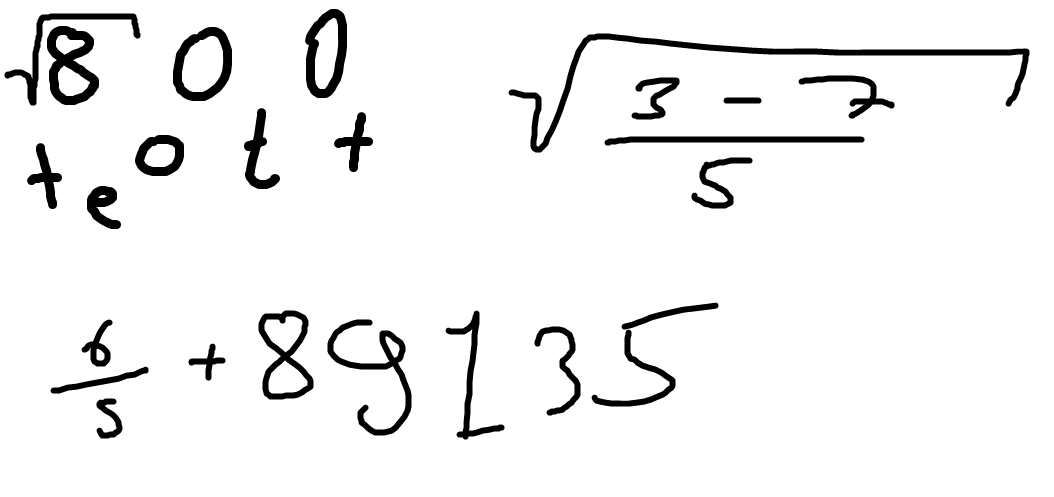 √8 0 0
+ e o t +
√((3 - 7)/5)
6/5 + 89135